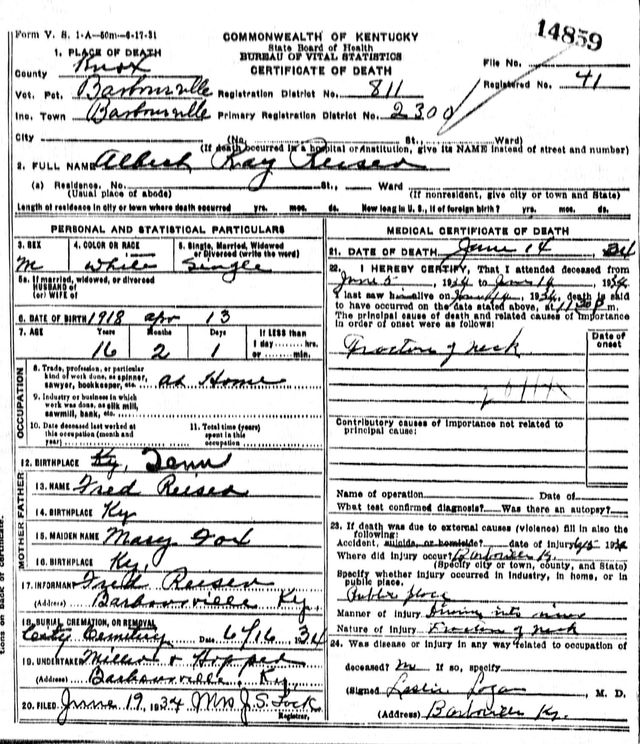 Form V. S. 1-A-50m-6-17-31
14859
COMMONWEALTH OF KENTUCKY
State Board of Health
BUREAU OF VITAL STATISTICS
CERTIFICATE OF DEATH
1. PLACE OF DEATH
County Knox
File No.
Registered No. 41
Vot. Pct. Barbourville Registration District No. 811
Inc. Town Barbourville Primary Registration District No. 2300
City (No. St., Ward)
(If death occurred in a hospital or institution, give its NAME instead of street and number)
2. FULL NAME Albert Ray Reiser
(a) Residence. No. St., Ward
(Usual place of abode) (If nonresident, give city or town and State)
Length of residence in city or town where death occurred yrs. mos. ds. How long in U. S., if of foreign birth? yrs. mos. ds.
PERSONAL AND STATISTICAL PARTICULARS
3. SEX 4. COLOR OR RACE 5. Single, Married, Widowed
or Divorced (write the word)
M white Single
5a. If married, widowed, or divorced
HUSBAND of
(or) WIFE of
6. DATE OF BIRTH 1918 apr 13
7. AGE Years Months Days If LESS than
16 2 1 1 day hrs.
or min.
OCCUPATION
8. Trade, profession, or particular
kind of work done, as spinner,
sawyer, bookkeeper, etc. at Home
9. Industry or business in which
work was done, as silk mill,
sawmill, bank, etc.
10. Date deceased last worked at
this occupation (month and
year)
11. Total time (years)
spent in this
occupation
12. BIRTHPLACE Ky, Tenn
MOTHER FATHER
13. NAME Fred Reiser
14. BIRTHPLACE Ky
15. MAIDEN NAME Mary Fox
16. BIRTHPLACE Ky.
17. INFORMANT Fred Reiser
(Address) Barbourville Ky.
18. BURIAL, CREMATION, OR REMOVAL
City Cemetery Date 6/16 34
19. UNDERTAKER Miller & Hopper
(Address) Barbourville, Ky.
20. FILED June 19, 1934 Mrs J. S. Lock
Registrar.
MEDICAL CERTIFICATE OF DEATH
21. DATE OF DEATH June 14 34
22. I HEREBY CERTIFY, That I attended deceased from
June 5 1934 to June 14, 1934
I last saw him alive on June 14, 1934, death is said
to have occurred on the date stated above, at m.
The principal cause of death and related causes of importance
in order of onset were as follows:
Date of
onset
Fracture of neck
Contributory causes of importance not related to
principal cause:
Name of operation Date of
What test confirmed diagnosis? Was there an autopsy?
23. If death was due to external causes (violence) fill in also the
following:
Accident, suicide, or homicide? date of injury 6/5 1934
Where did injury occur? Barbourville Ky.
(Specify city or town, county, and State)
Specify whether injury occurred in industry, in home, or in
public place.
Public place
Manner of injury Diving into river
Nature of injury Fracture of neck
24. Was disease or injury in any way related to occupation of
deceased? no If so, specify
(Signed Leslie Logan M. D.
(Address) Barbourville Ky.
tions on back of certificate.